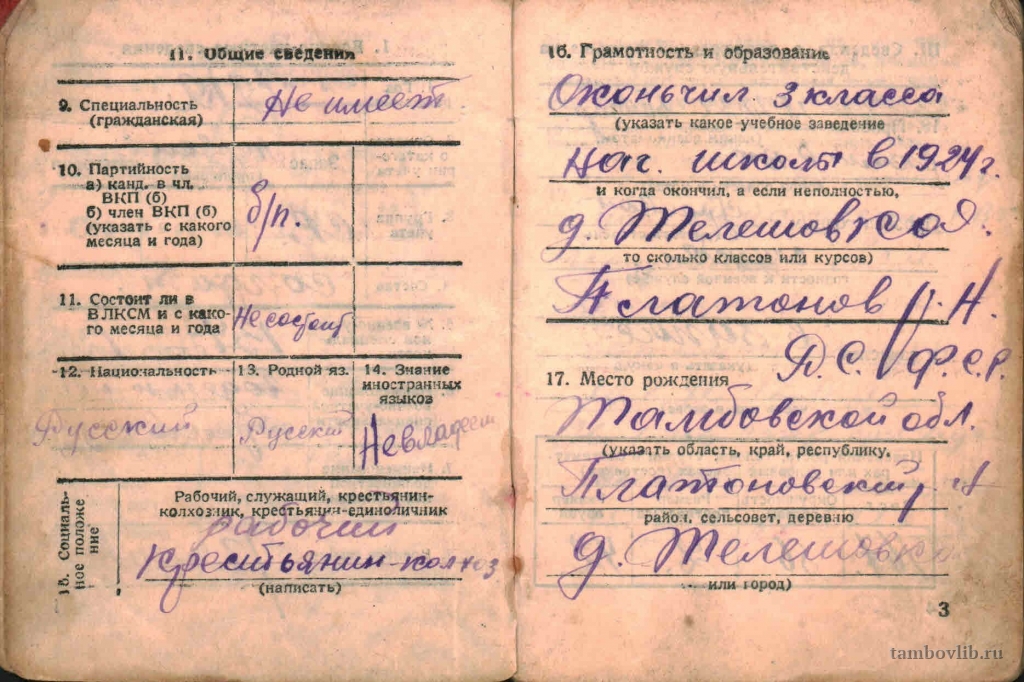 11. Общие сведения
9. Специальность
(гражданская)
Не имеет
10. Партийность
а) канд. в чл.
ВКП (б)
б) член ВКП (б)
(указать с какого
месяца и года)
б/п.
11. Состоит ли в
ВЛКСМ и с како-
го месяца и года
Не состоит
12. Национальность
Русский
13. Родной яз.
Русский
14. Знание
иностранных
языков
Не владеет
15. Социаль-
ное положе-
ние
Рабочий, служащий, крестьянин-
колхозник, крестьянин-единоличник
рабочий
Крестьянин-колхоз
(написать)
16. Грамотность и образование
Окончил 3 класса
(указать какое учебное заведение
нач. школы в 1924 г.
и когда окончил, а если неполностью,
д Телешовская.
то сколько классов или курсов)
Платонов р. Н.
Р.С.Ф.С.Р
17. Место рождения
Тамбовской обл.
(указать область, край, республику,
Платоновский р.
район, сельсовет, деревню
д. Телешовка
или город)
3
tambovlib.ru